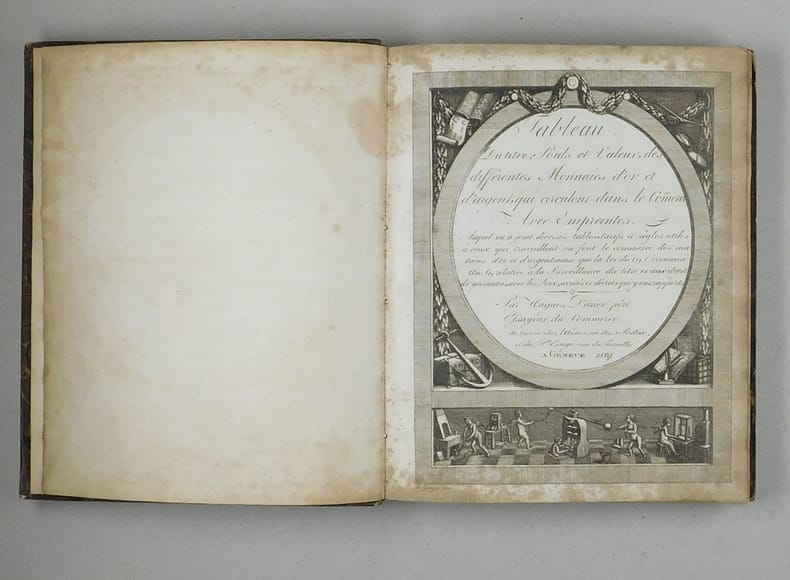 Tableau
Du titre, Poids et Valeur, des
différentes Monnaies d'or et
d'argent, qui circulent dans le Cōmerce
Avec Empreintes.
Auquel on a joint diverses tables, tarifs et règles utiles
à ceux qui travaillent ou font le commerce des ma
tières d'or et d'argent, ainsi que la loi du 19 Brumaire
An 6, relative à la Surveillance du titre et aux droits
de garantie, avec les Loix, arrêtés et décrets qui y ont rapport
Par Hugues Darier père
Essayeur du Commerce.
Se trouve chez
et chez
A GENÈVE 1807